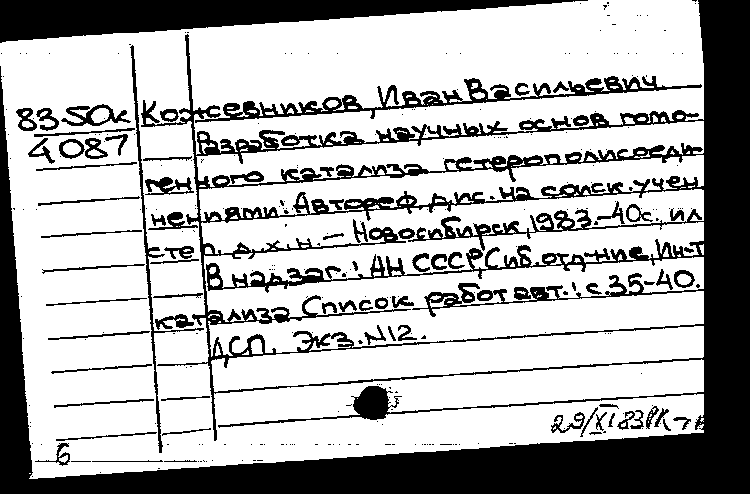 83-50к Кожевников, Иван Васильевич.
4087 Разработка научных основ гомо-
генного катализа гетерополисоеди-
нениями: Автореф. дис. на соиск. учен.
степ. д. х. н. — Новосибирск, 1983.-40с., ил
В надзаг.: АН СССР, Сиб. отд-ние, Ин-т
катализа. Список работ авт.: с. 35-40.
ДСП. Экз. N12.
29/XI 83
6